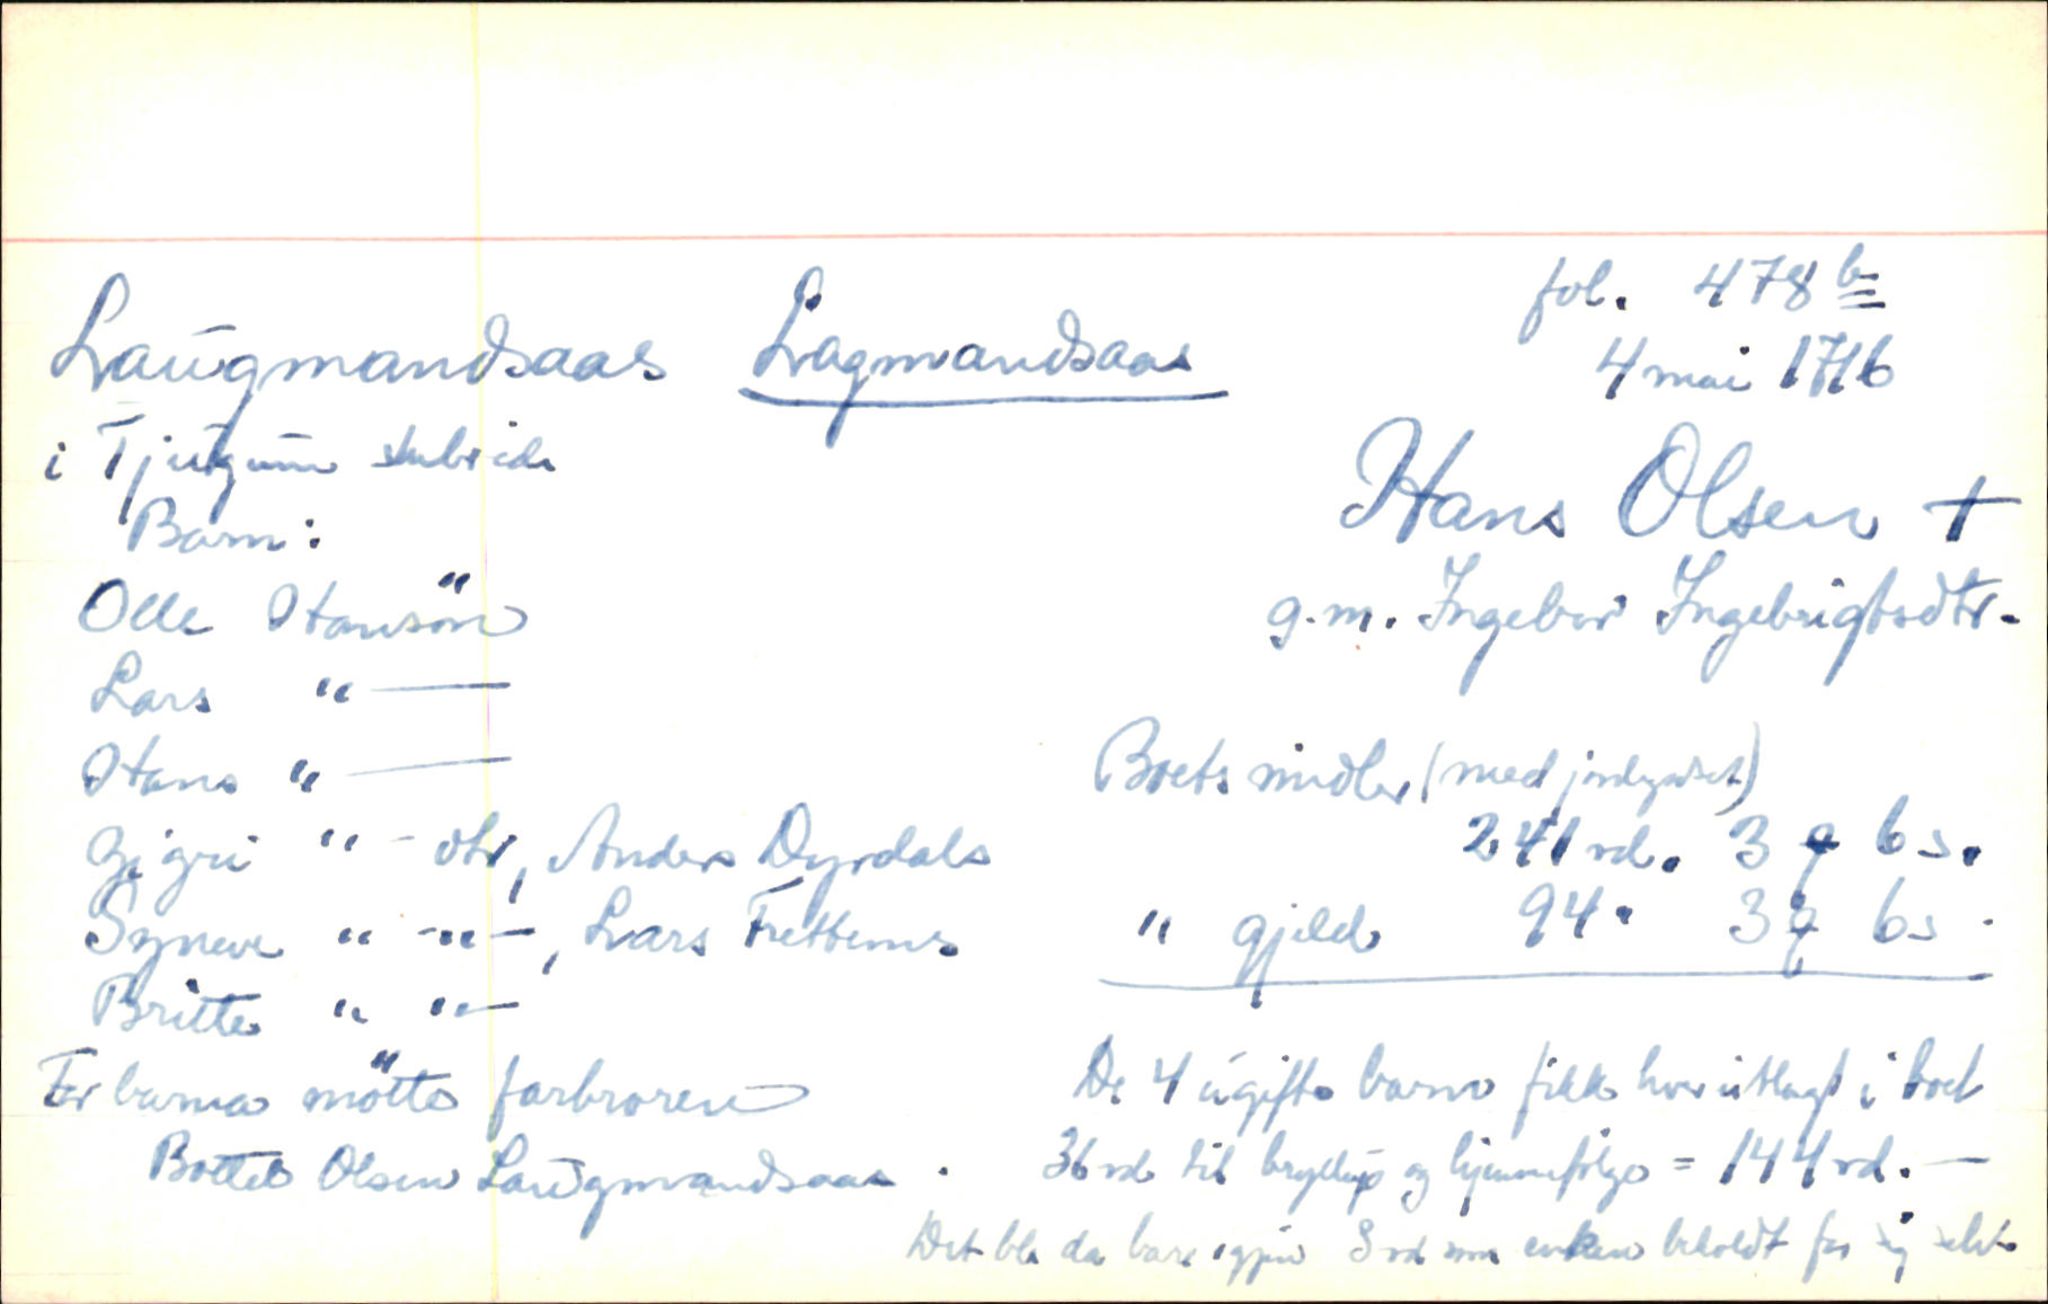 fol. 478 b
Laugmandsaas Lagmandsaas
4 mai 1716
i Tjugum skibride
Hans Olsen +
Barn:
g.m. Ingebor Ingebrigtsdtr.
Olle Hansön
Lars " —
Hans " —
Boets midler (med jordegodset)
Zigri " - dtr, Anders Dyrdals
241 rd. 3 q 6 s.
Syneve " -"-, Lars Frettems
" gjeld 94 " 3 q 6 s.
Britte " "—
For barna mötte farbroren
De 4 ugifte barn fikk hver utlagt i boet
Bottel Olsen Laugmandsaas.
36 rd til bryllup og hjemmefölge = 144 rd. —
Det ble da bare igjen 3 rd som enken beholdt for sig selv